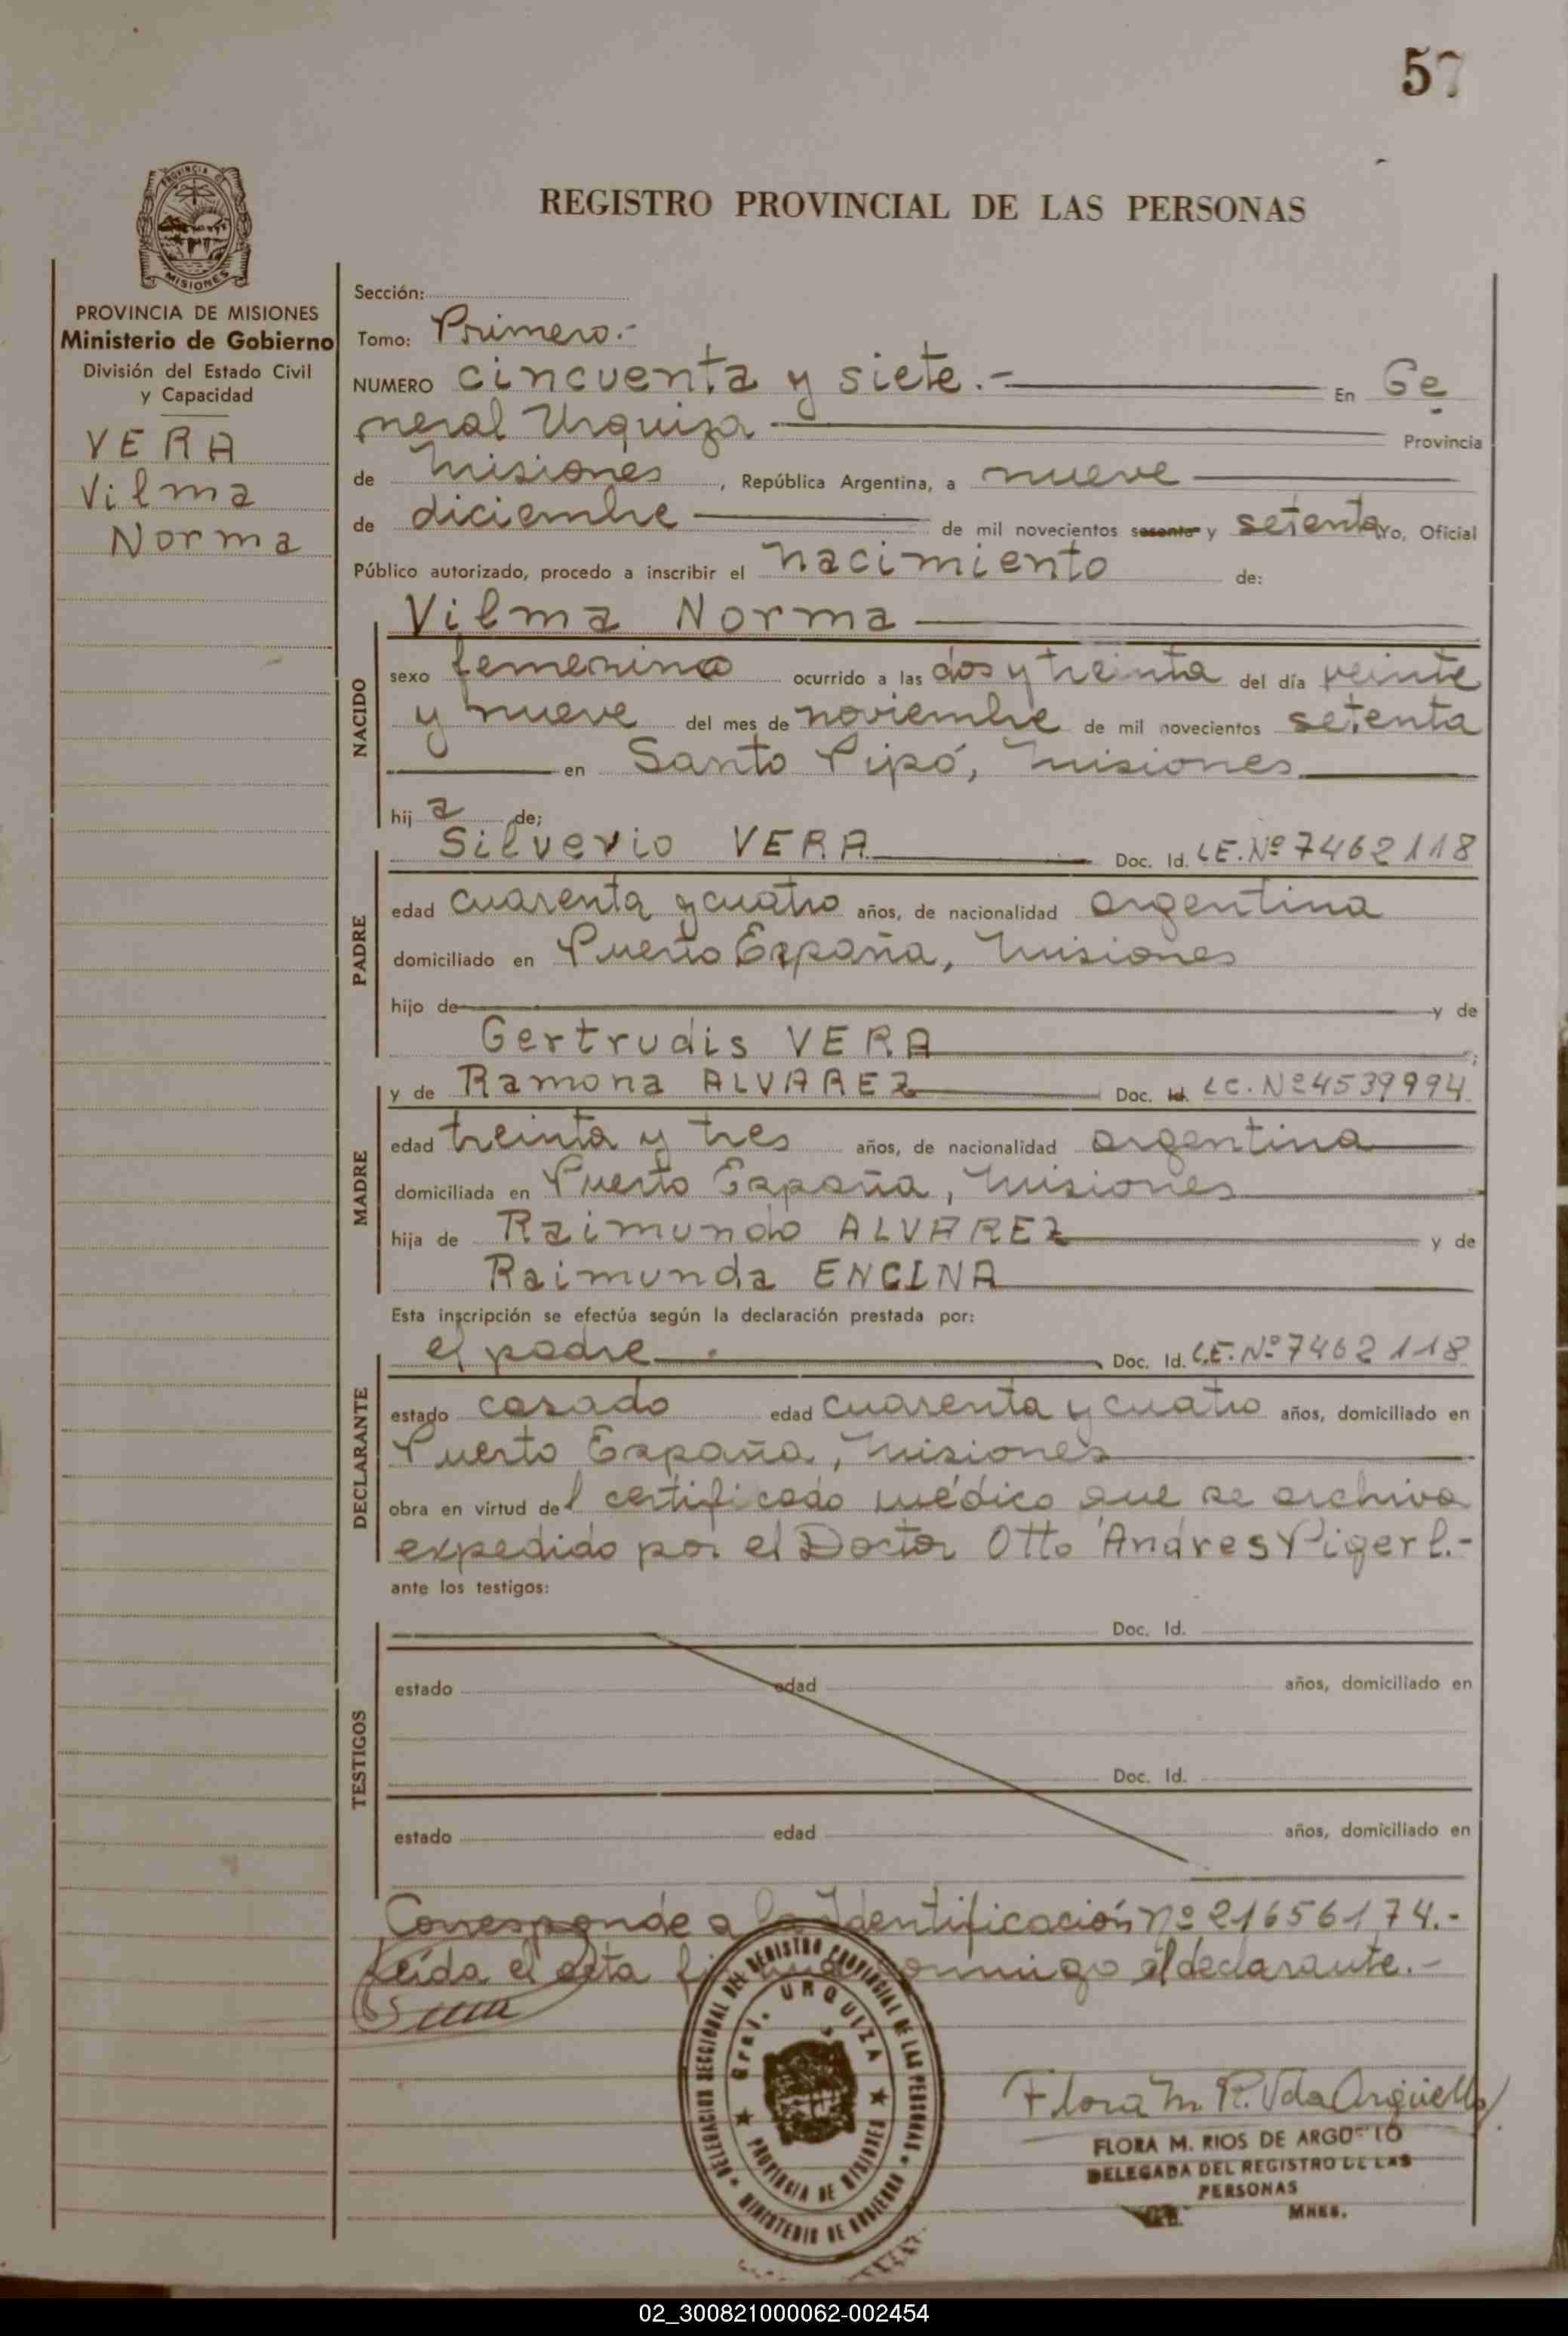 57
REGISTRO PROVINCIAL DE LAS PERSONAS
PROVINCIA DE
MISIONES
PROVINCIA DE MISIONES
Ministerio de Gobierno
División del Estado Civil
y Capacidad
VERA
Vilma
Norma
Sección:
Tomo: Primero.-
NUMERO cincuenta y siete.- En Ge
neral Urquiza Provincia
de Misiones, República Argentina, a nueve
de diciembre de mil novecientos sesenta y setenta Yo, Oficial
Público autorizado, procedo a inscribir el nacimiento de:
Vilma Norma
NACIDO
sexo femenino ocurrido a las dos y treinta del día veinte
y nueve del mes de noviembre de mil novecientos setenta
en Santo Pipó, Misiones
hija de;
Silverio VERA Doc. Id. LE. Nº 7462118
PADRE
edad cuarenta y cuatro años, de nacionalidad argentina
domiciliado en Puerto España, Misiones
hijo de y de
Gertrudis VERA ;
y de Ramona ALVAREZ Doc. Id. LC. Nº 4539994
MADRE
edad treinta y tres años, de nacionalidad argentina
domiciliada en Puerto España, Misiones
hija de Raimundo ALVAREZ y de
Raimunda ENCINA
Esta inscripción se efectúa según la declaración prestada por:
el padre Doc. Id. L.E. Nº 7462118
DECLARANTE
estado casado edad cuarenta y cuatro años, domiciliado en
Puerto España, Misiones
obra en virtud del certificado médico que se archiva
expedido por el Doctor Otto Andres Pigerl.-
ante los testigos:
TESTIGOS
Doc. Id.
estado edad años, domiciliado en
Doc. Id.
estado edad años, domiciliado en
Corresponde a la Identificación nº 21656174.-
Leída el acta firma conmigo el declarante.-
DELEGACION SECCIONAL DEL REGISTRO PROVINCIAL DE LAS PERSONAS
Gral. URQUIZA
PROVINCIA DE MISIONES
MINISTERIO DE GOBIERNO
Flora M. R. Vda Argüello
FLORA M. RIOS DE ARGÜELLO
DELEGADA DEL REGISTRO DE LAS
PERSONAS
MNES.
02_300821000062-002454